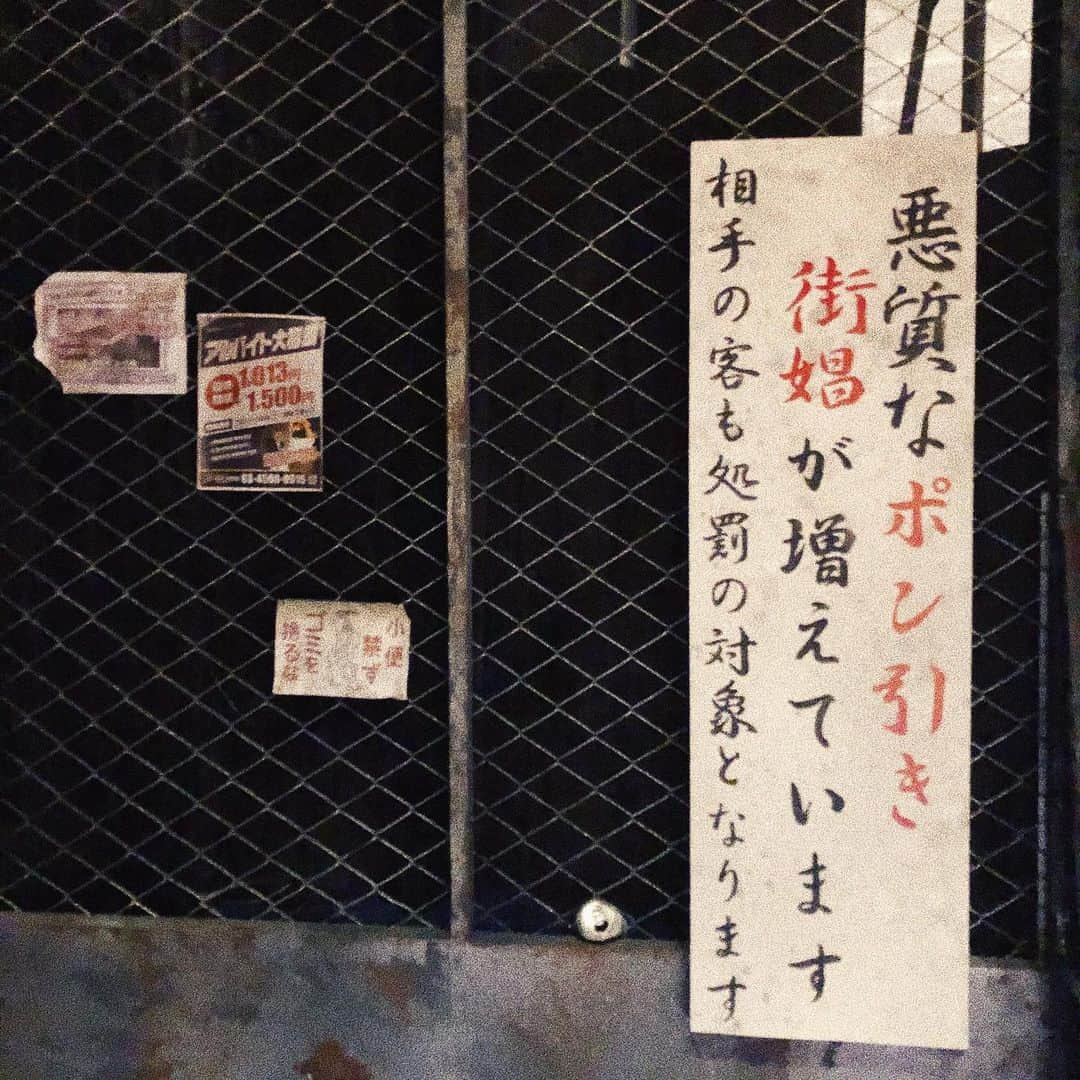 悪質なポン引き
街娼が増えています
相手の客も処罰の対象となります
アルバイト大募集
日
1,013円
1,500円
小便
禁ず
ゴミを
捨るな